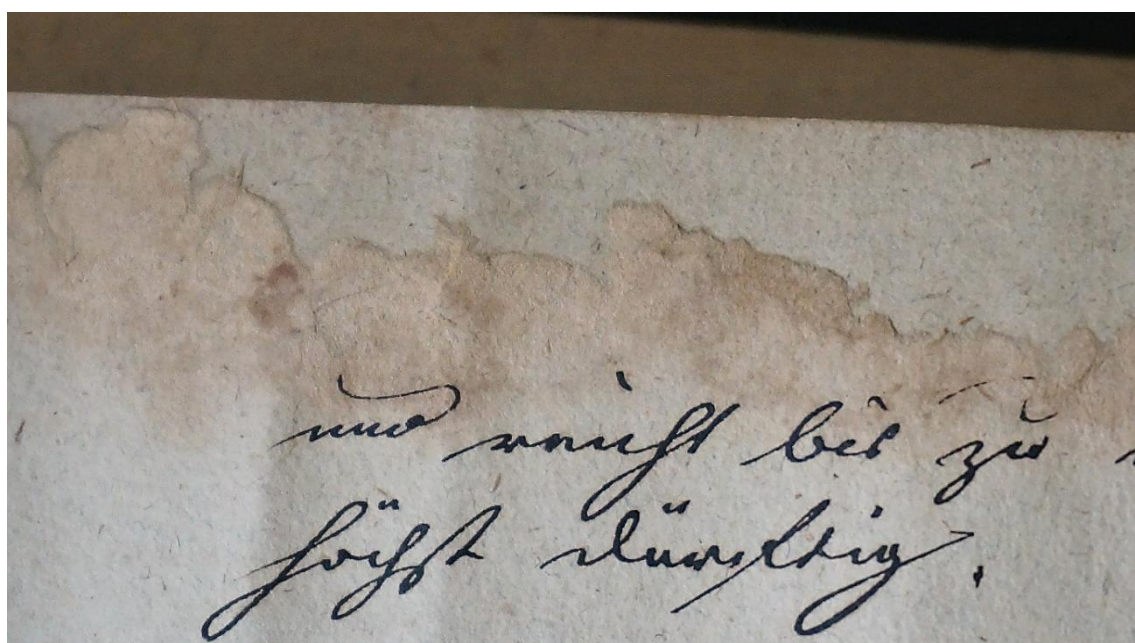 und reicht bis zu
höchst dürftig.